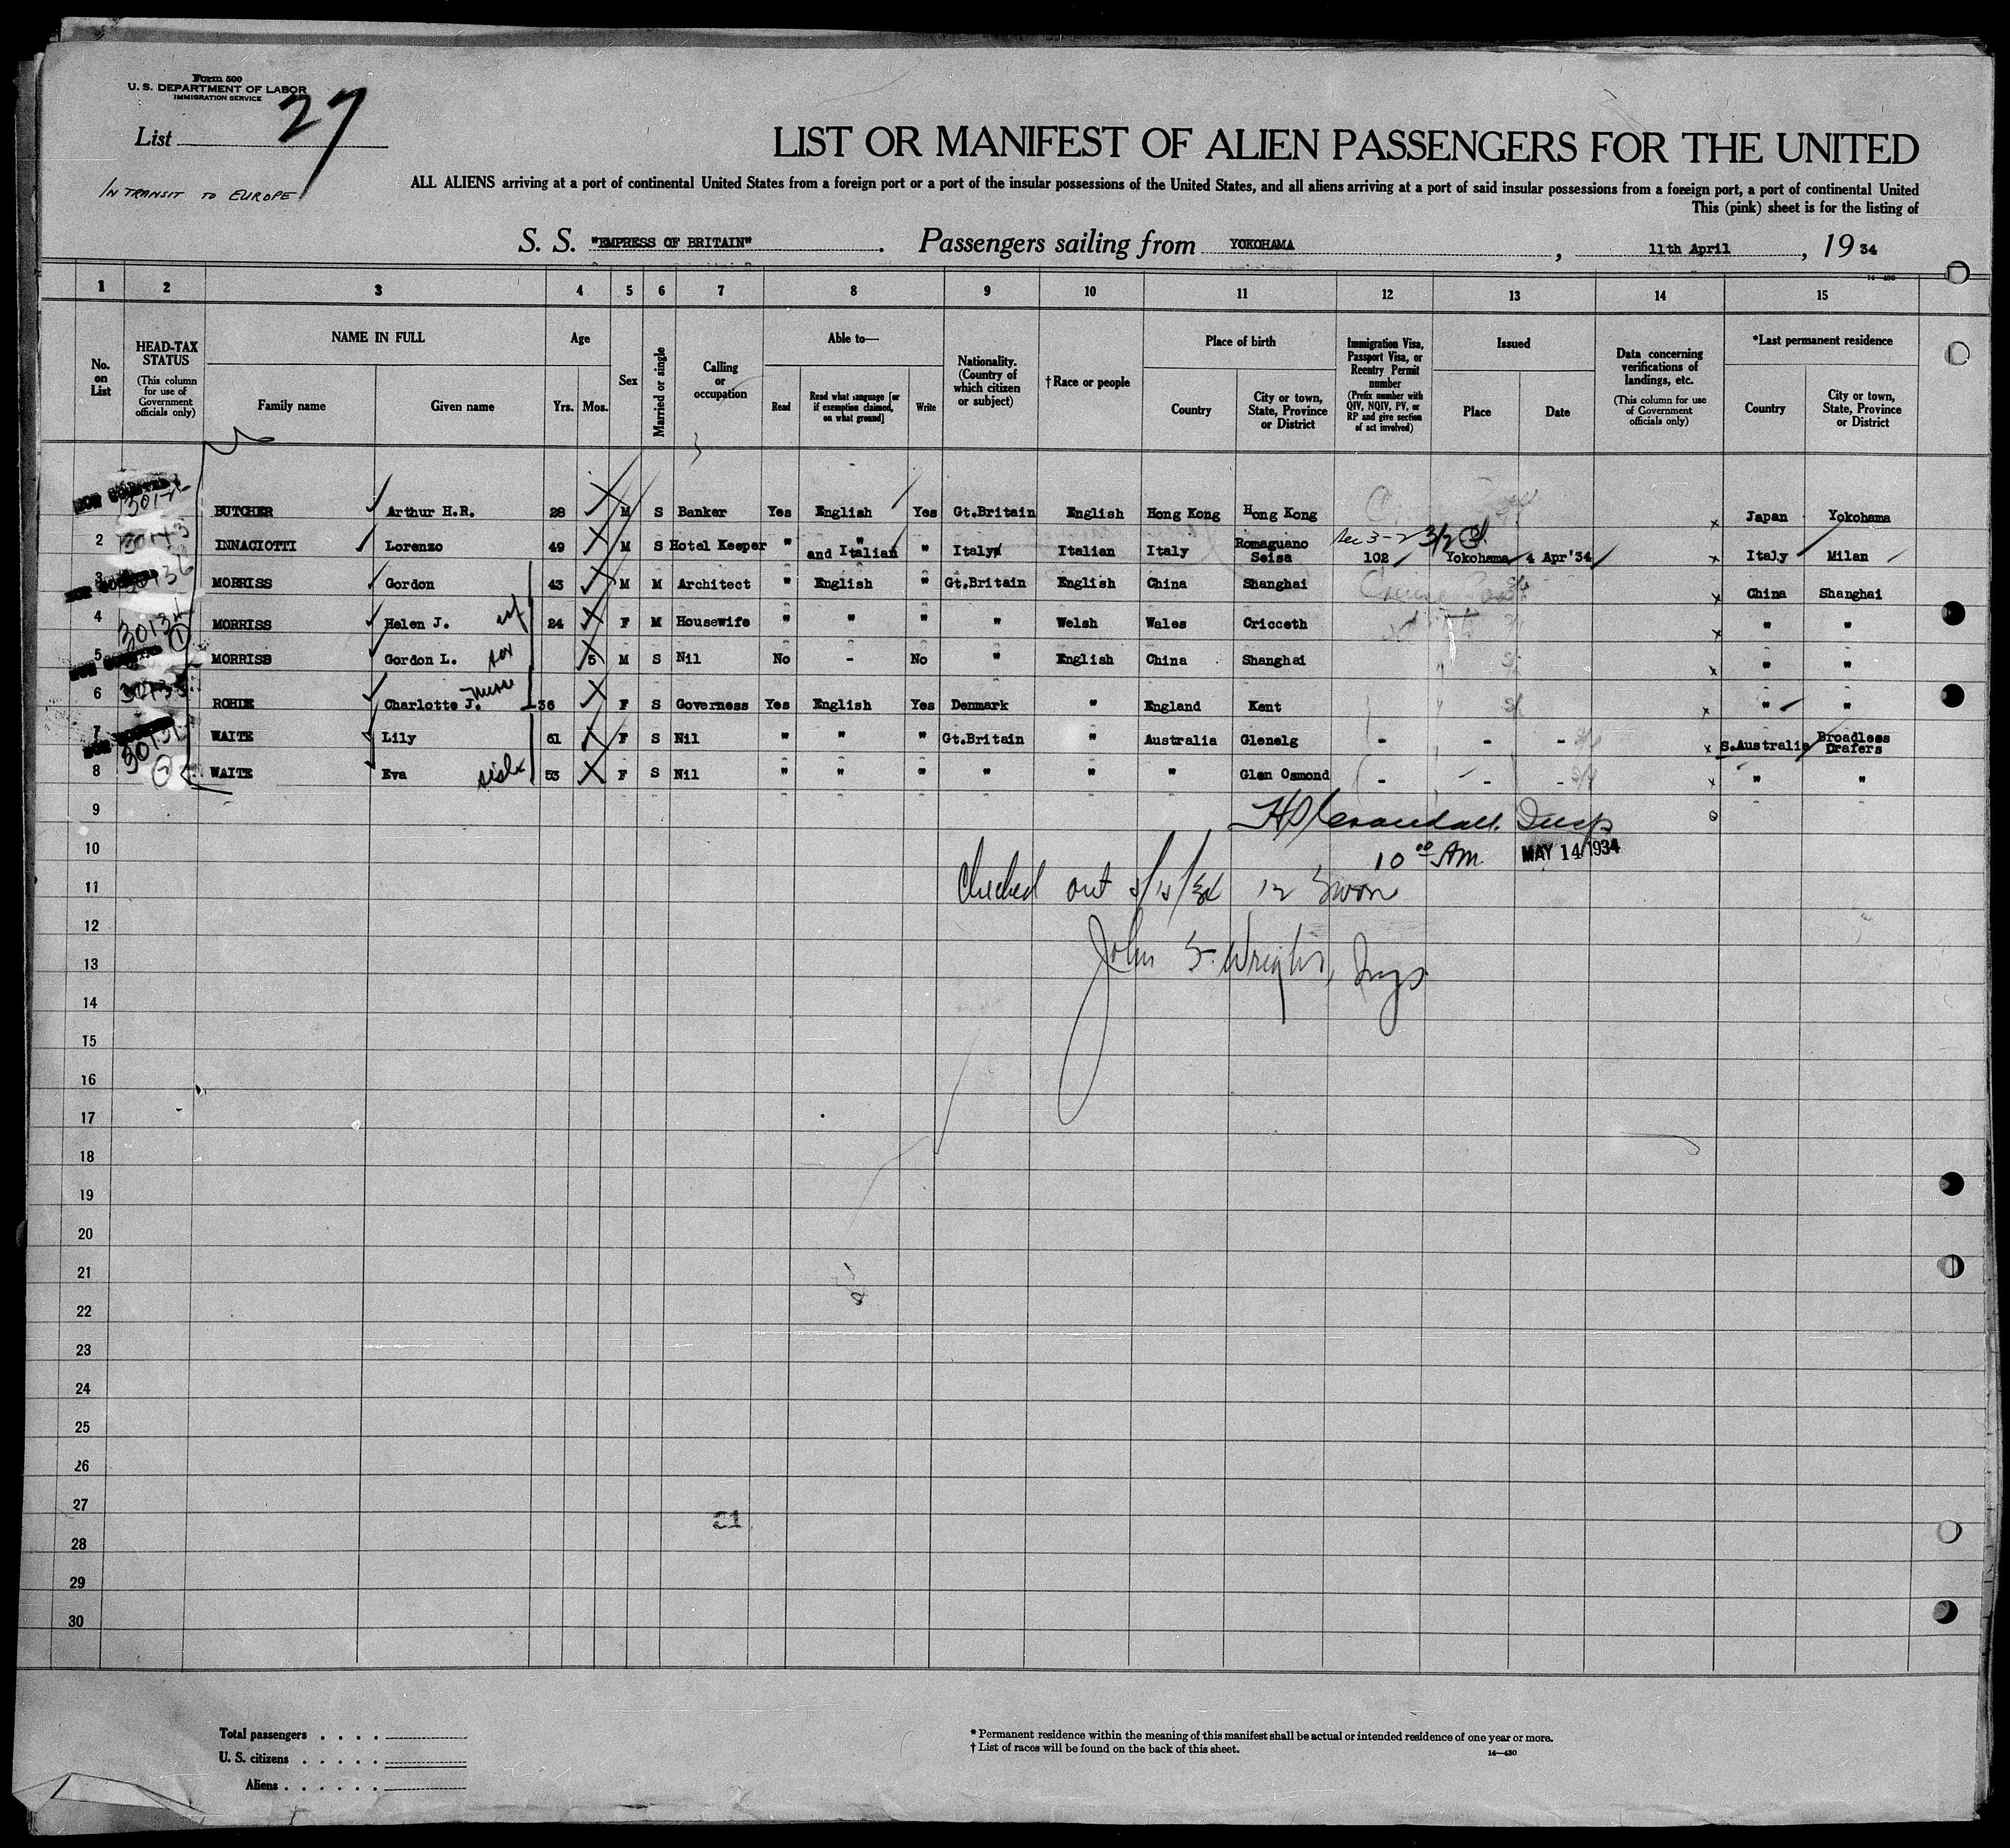 Form 500
U. S. DEPARTMENT OF LABOR
IMMIGRATION SERVICE
List 27
IN TRANSIT TO EUROPE
LIST OR MANIFEST OF ALIEN PASSENGERS FOR THE UNITED
ALL ALIENS arriving at a port of continental United States from a foreign port or a port of the insular possessions of the United States, and all aliens arriving at a port of said insular possessions from a foreign port, a port of continental United
This (pink) sheet is for the listing of
S. S. "EMPRESS OF BRITAIN". Passengers sailing from YOKOHAMA, 11th April, 1934
1 2 3 4 5 6 7 8 9 10 11 12 13 14 15
No. on List
HEAD-TAX STATUS (This column for use of Government officials only)
NAME IN FULL Family name Given name
Age Yrs. Mos.
Sex
Married or single
Calling or occupation
Able to— Read Read what language [or if exemption claimed, on what ground] Write
Nationality. (Country of which citizen or subject)
†Race or people
Place of birth Country City or town, State, Province or District
Immigration Visa, Passport Visa, or Reentry Permit number (Prefix number with QIV, NQIV, PV, or RP and give section of act involved)
Issued Place Date
Data concerning verifications of landings, etc. (This column for use of Government officials only)
*Last permanent residence Country City or town, State, Province or District
BUTCHER Arthur H.R. 28 M S Banker Yes English Yes Gt.Britain English Hong Kong Hong Kong Japan Yokohama
2 INNACIOTTI Lorenzo 49 M S Hotel Keeper " " and Italian " Italy Italian Italy Romaguano Seisa 102 Yokohama 4 Apr'34 Italy Milan
3 MORRISS Gordon 43 M M Architect " English " Gt.Britain English China Shanghai China Shanghai
4 MORRISS Helen J. wf 24 F M Housewife " " " " Welsh Wales Cricceth " "
5 MORRISS Gordon L. son 5 M S Nil No - No " English China Shanghai " "
6 ROHDE Charlotte J. nurse 36 F S Governess Yes English Yes Denmark " England Kent " "
7 WAITE Lily 61 F S Nil " " " Gt.Britain " Australia Glenelg - - - S.Australia Broadless Drafers
8 WAITE Eva sister 53 F S Nil " " " " " " Glen Osmond - - - " "
9
10 10 00 AM MAY 14 1934
11 Checked out 12
12
13 John Wright, Insp
14
15
16
17
18
19
20
21
22
23
24
25
26
27
21
28
29
30
Total passengers . . . .
U. S. citizens . . . . .
Aliens . . . . . .
* Permanent residence within the meaning of this manifest shall be actual or intended residence of one year or more.
† List of races will be found on the back of this sheet.
14—430